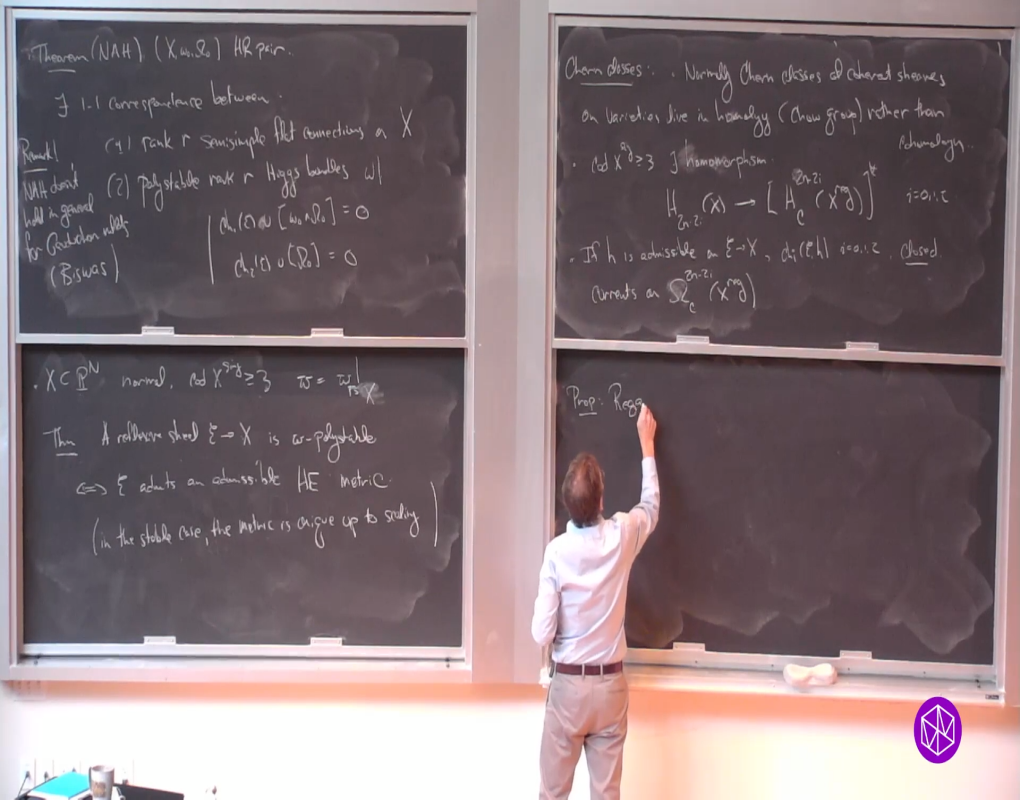 Theorem (NAH). (X, ω₀, Ω₀) HR pair.
∃ 1-1 correspondence between:
(1) rank r semisimple flat connections on X
(2) polystable rank r Higgs bundles w/
ch₁(ξ) ∪ [ω₀ ∧ Ω₀] = 0
ch₂(ξ) ∪ [Ω₀] = 0
Remark
NAH doesn't
hold in general
for
(Biswas)
· X ⊂ P^N normal, cod X^sing ≥ 3 ω = ω_FS|_X
Thm A reflexive sheaf ξ → X is ω-polystable
⇔ ξ admits an admissible HE metric.
(in the stable case, the metric is unique up to scaling)
Chern classes: · Normally Chern classes of coherent sheaves
on live in homology (Chow group) rather than
cohomology.
· cod X^sing ≥ 3 ∃ homomorphism
H_{2n-2i}(X) → [H_c^{2n-2i}(X^reg)]^* i=0,1,2
· If h is admissible on ξ → X, ch_i(ξ,h) i=0,1,2 closed
currents on Ω_c^{2n-2i}(X^reg)
Prop: